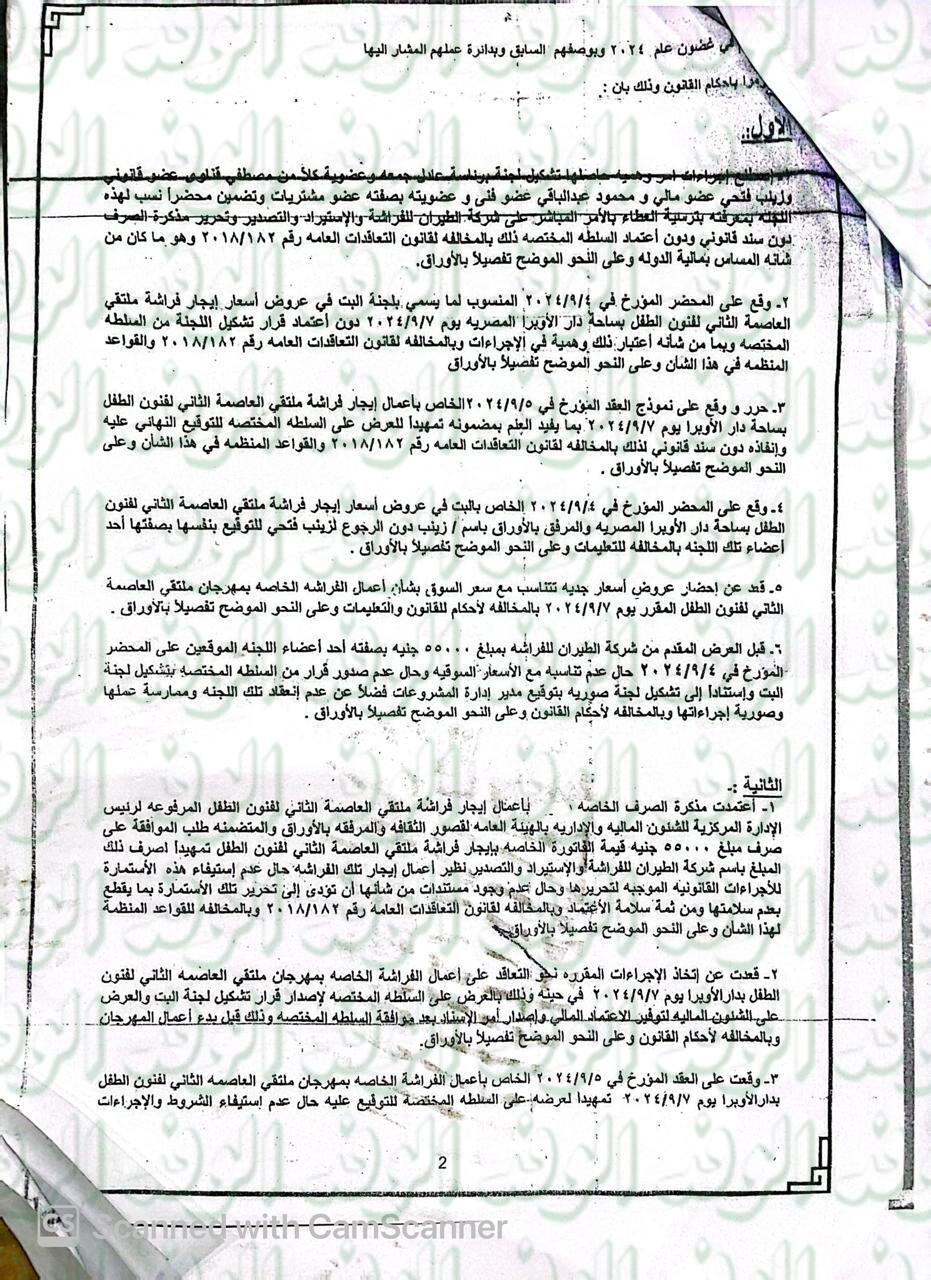 في غضون عام ٢٠٢٤ وبوصفهم السابق وبدائرة عملهم المشار اليها
باحكام القانون وذلك بان :
الاول:.
إجراءات أمر وهميه حاصلها تشكيل لجنة برئاسة عادل جمعه وعضوية كلاً من مصطفي قناوى عضو قانوني
وزينب فتحي عضو مالي و محمود عبدالباقي عضو فنى و عضويته بصفته عضو مشتريات وتضمين محضراً نسب لهذه
اللجنه بمعرفته بترسية العطاء بالأمر المباشر على شركة الطيران للفراشة والإستيراد والتصدير وتحرير مذكرة الصرف
دون سند قانوني ودون أعتماد السلطه المختصه ذلك بالمخالفه لقانون التعاقدات العامه رقم ٢٠١٨/١٨٢ وهو ما كان من
شأنه المساس بمالية الدوله وعلى النحو الموضح تفصيلاً بالأوراق.
٢- وقع على المحضر المؤرخ في ٢٠٢٤/٩/٤ المنسوب لما يسمي بلجنة البت في عروض أسعار إيجار فراشة ملتقي
العاصمة الثاني لفنون الطفل بساحة دار الأوبرا المصريه يوم ٢٠٢٤/٩/٧ دون أعتماد قرار تشكيل اللجنة من السلطه
المختصه وبما من شأنه أعتبار ذلك وهمية في الإجراءات وبالمخالفه لقانون التعاقدات العامه رقم ٢٠١٨/١٨٢ والقواعد
المنظمه في هذا الشأن وعلى النحو الموضح تفصيلاً بالأوراق
٣- حرر و وقع على نموذج العقد المؤرخ في ٢٠٢٤/٩/٥الخاص بأعمال إيجار فراشة ملتقي العاصمة الثاني لفنون الطفل
بساحة دار الأوبرا يوم ٢٠٢٤/٩/٧ بما يفيد العلم بمضمونه تمهيداً للعرض على السلطه المختصه للتوقيع النهاني عليه
وإنفاذه دون سند قانوني لذلك بالمخالفه لقانون التعاقدات العامه رقم ٢٠١٨/١٨٢ والقواعد المنظمه في هذا الشأن وعلى
النحو الموضح تفصيلاً بالأوراق .
٤- وقع على المحضر المؤرخ في ٢٠٢٤/٩/٤ الخاص بالبت في عروض أسعار إيجار فراشة ملتقي العاصمة الثاني لفنون
الطفل بساحة دار الأوبرا المصريه والمرفق بالأوراق باسم / زينب دون الرجوع لزينب فتحي للتوقيع بنفسها بصفتها أحد
أعضاء تلك اللجنه بالمخالفه للتعليمات وعلى النحو الموضح تفصيلاً بالأوراق .
٥- قعد عن إحضار عروض أسعار جديه تتناسب مع سعر السوق بشأن أعمال الفراشه الخاصه بمهرجان ملتقي العاصمة
الثاني لفنون الطفل المقرر يوم ٢٠٢٤/٩/٧ بالمخالفه لأحكام للقانون والتعليمات وعلى النحو الموضح تفصيلاً بالأوراق .
٦- قبل العرض المقدم من شركة الطيران للفراشه بمبلغ ٥٥٠٠٠ جنيه بصفته أحد أعضاء اللجنه الموقعين على المحضر
المؤرخ في ٢٠٢٤/٩/٤ حال عدم تناسبه مع الأسعار السوقيه وحال عدم صدور قرار من السلطه المختصه بتشكيل لجنة
البت وإستناداً إلى تشكيل لجنة صوريه بتوقيع مدير إدارة المشروعات فضلاً عن عدم إنعقاد تلك اللجنه وممارسة عملها
وصورية إجراءاتها وبالمخالفه لأحكام القانون وعلى النحو الموضح تفصيلاً بالأوراق .
الثانية :-
١- أعتمدت مذكرة الصرف الخاصه بأعمال إيجار فراشة ملتقي العاصمة الثاني لفنون الطفل المرفوعه لرئيس
الإدارة المركزية للشئون الماليه والإداريه بالهيئة العامه لقصور الثقافه والمرفقه بالأوراق والمتضمنه طلب الموافقة على
صرف مبلغ ٥٥٠٠٠ جنيه قيمة الفاتورة الخاصه بإيجار فراشة ملتقي العاصمة الثاني لفنون الطفل تمهيداً لصرف ذلك
المبلغ باسم شركة الطيران للفراشة والإستيراد والتصدير نظير أعمال إيجار تلك الفراشه حال عدم إستيفاء هذه الأستمارة
للأجراءات القانونيه الموجبه لتحريرها وحال عدم وجود مستندات من شأنها أن تؤدى إلى تحرير تلك الأستمارة بما يقطع
بعدم سلامتها ومن ثمة سلامة الأعتماد وبالمخالفه لقانون التعاقدات العامه رقم ٢٠١٨/١٨٢ وبالمخالفه للقواعد المنظمة
لهذا الشأن وعلى النحو الموضح تفصيلاً بالأوراق.
٢- قعدت عن إتخاذ الإجراءات المقرره نحو التعاقد على أعمال الفراشة الخاصه بمهرجان ملتقي العاصمه الثاني لفنون
الطفل بدارالأوبرا يوم ٢٠٢٤/٩/٧ في حينه وذلك بالعرض على السلطه المختصه لإصدار قرار تشكيل لجنة البت والعرض
على الشئون الماليه لتوفير الاعتماد المالي وإصدار أمر الإسناد بعد موافقة السلطه المختصه وذلك قبل بدء أعمال المهرجان
وبالمخالفه لأحكام القانون وعلى النحو الموضح تفصيلاً بالأوراق.
٣- وقعت على العقد المؤرخ في ٢٠٢٤/٩/٥ الخاص بأعمال الفراشة الخاصه بمهرجان ملتقي العاصمه الثاني لفنون الطفل
بدارالأوبرا يوم ٢٠٢٤/٩/٧ تمهيداً لعرضه على السلطه المختصة للتوقيع عليه حال عدم إستيفاء الشروط والإجراءات
2
CS Scanned with CamScanner